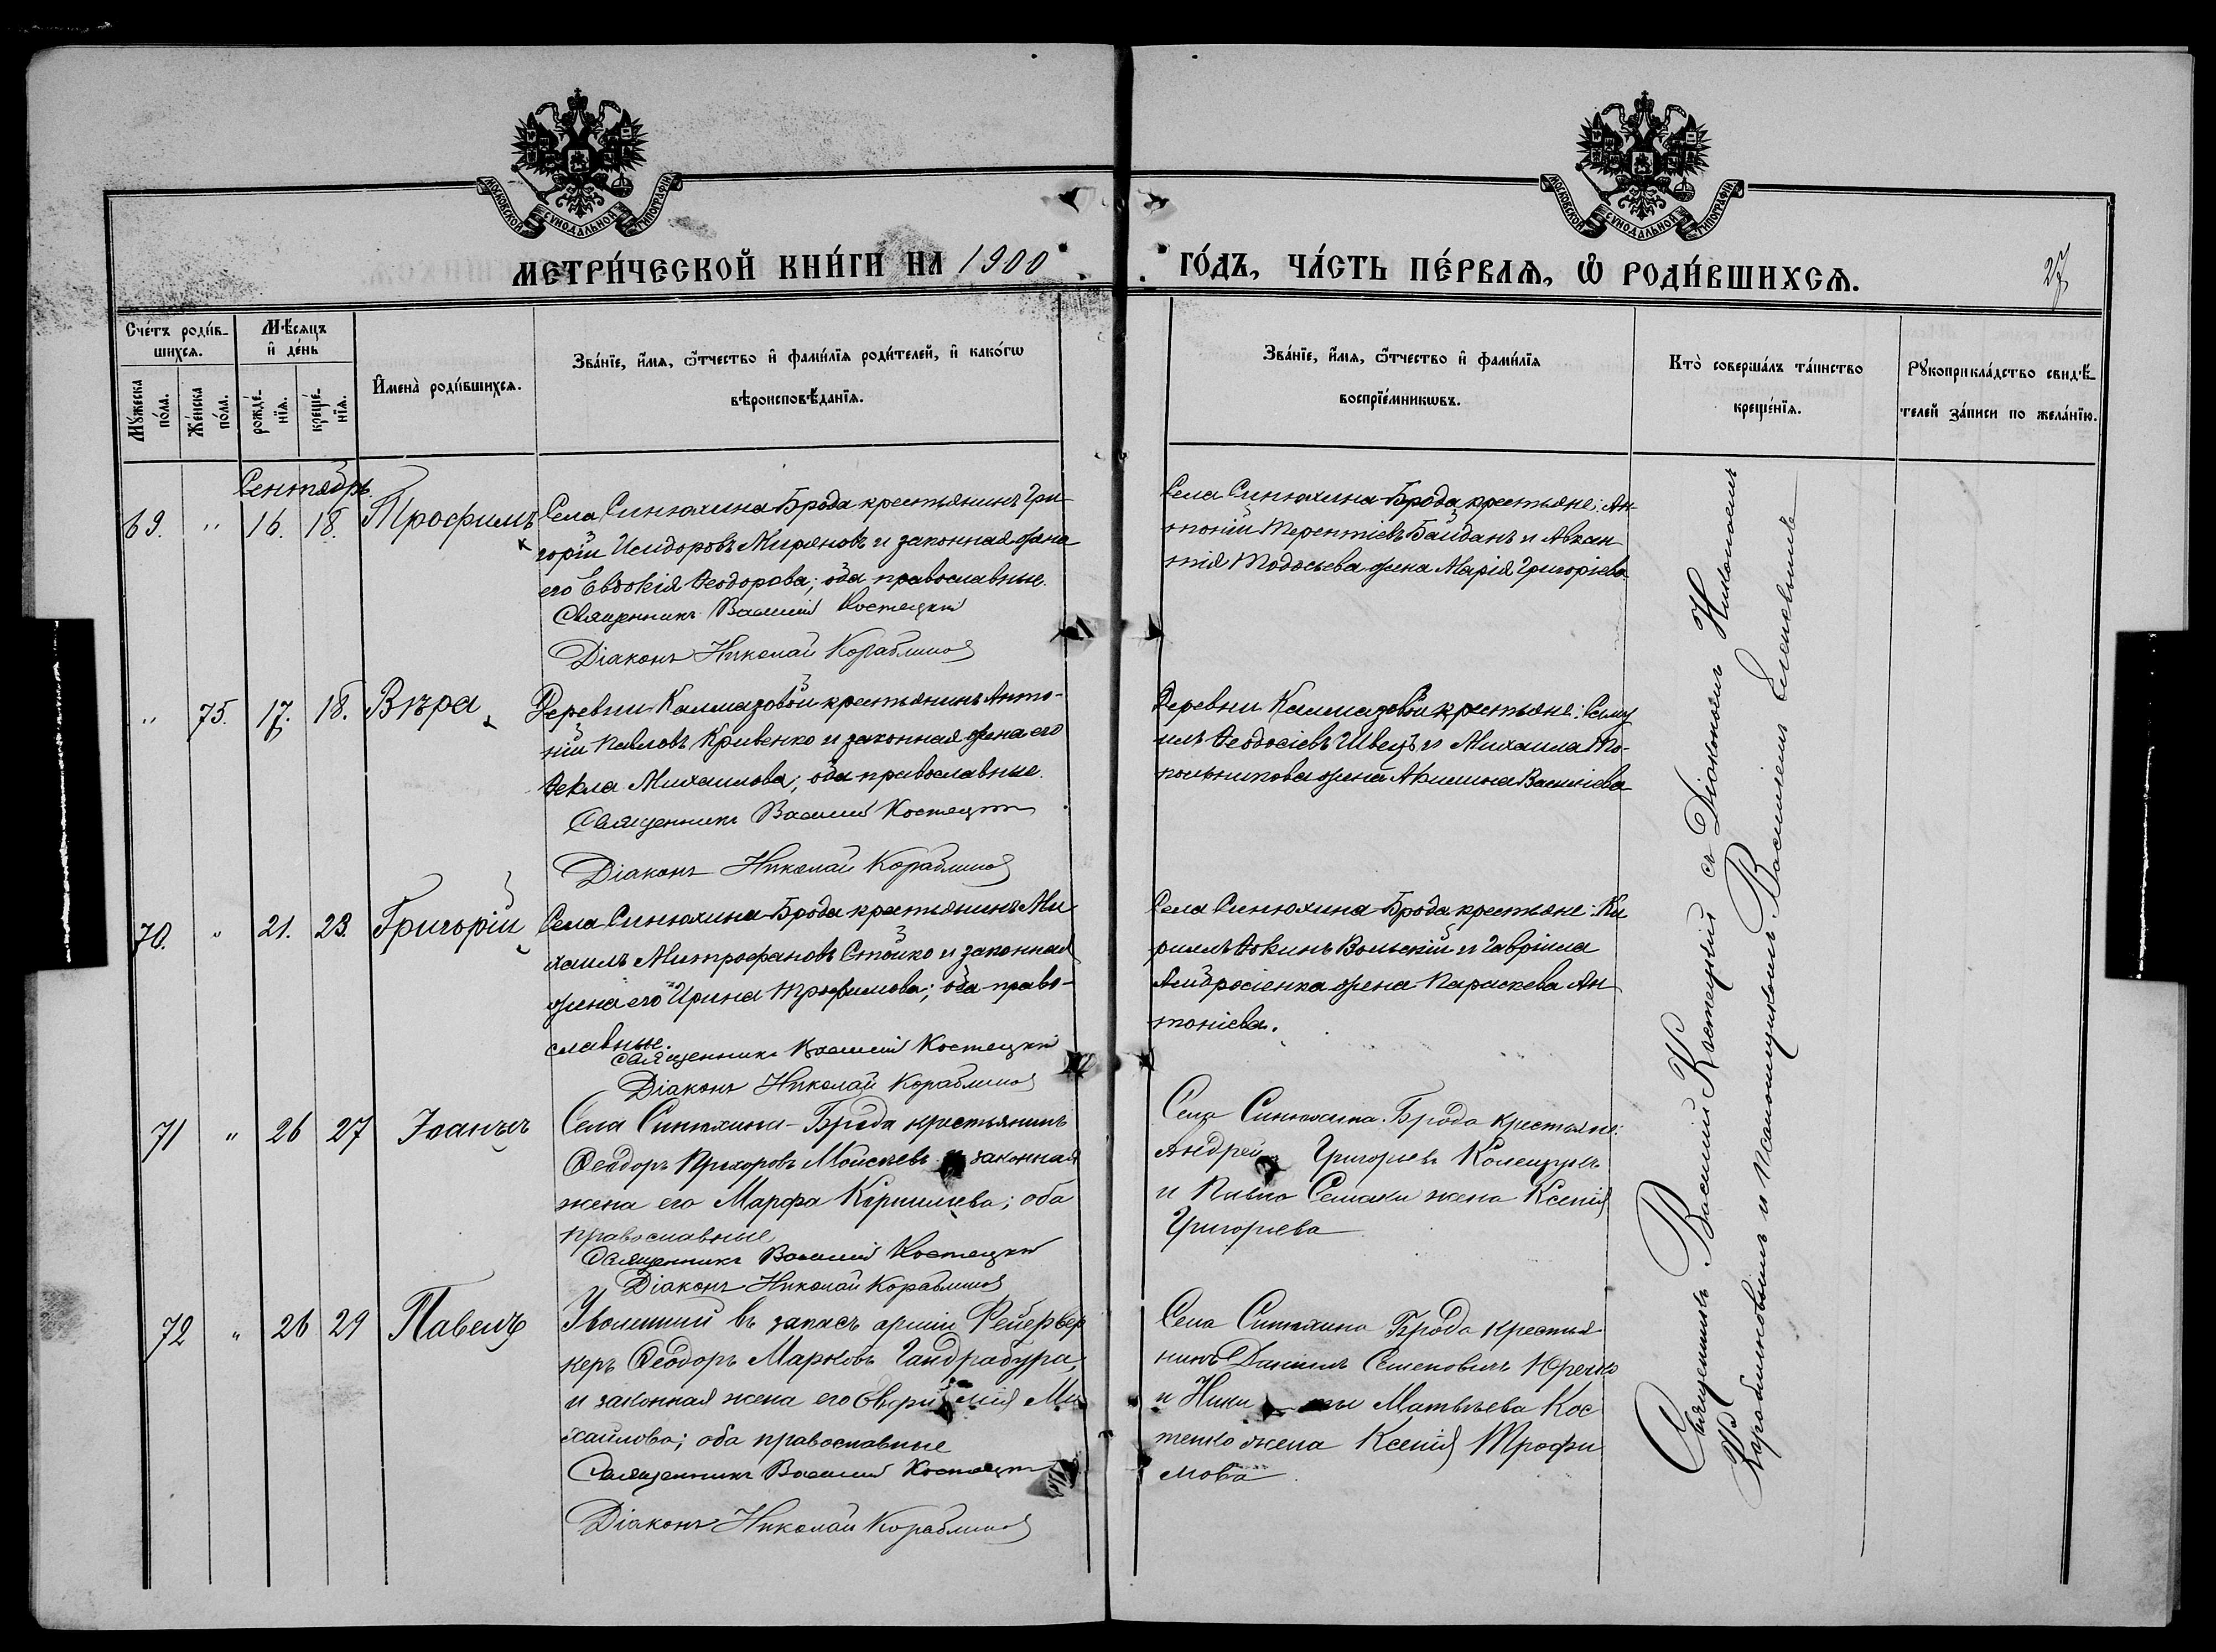 МОСКОВСКОЙ СѴНОДАЛЬНОЙ ТИПОГРАФІИ
МОСКОВСКОЙ СѴНОДАЛЬНОЙ ТИПОГРАФІИ
МЕТРИ́ЧЕСКОЙ КНИ́ГИ НА 1900 ГО́ДЪ, ЧА́СТЬ ПЕ́РВАѦ, Ѡ РОДИ́ВШИХСѦ.
27
Сче́тъ роди́в-
шихсѧ.
Мꙋ́жеска по́ла.
Же́нска по́ла.
Мѣ́сѧцъ
и҆ де́нь
рожде́-
нїѧ.
креще́-
нїѧ.
И҆мена̀ роди́вшихсѧ.
Зва́нїе, и҆́мѧ, ѻ҆́тчество и҆ фами́лїѧ роди́телей, и҆ како́гѡ
вѣроисповѣ́данїѧ.
Зва́нїе, и҆́мѧ, ѻ҆́тчество и҆ фами́лїѧ
воспрїе́мникѡвъ.
Кто̀ соверша́лъ та́инство
креще́нїѧ.
Рꙋкоприкла́дство свидѣ́-
телей за́писи по жела́нїю.
Сентябрь.
69. " 16. 18. Трофимъ
Села Синюхина-Брода крестьянинъ Гри-
горій Исидоровъ Миряновъ и законная жена
его Евдокія Ѳеодорова; оба православные.
Священникъ Василій Костецкій
Діаконъ Николай Кораблинов
Села Синюхина-Брода крестьяне: Ан-
тоній Терентіевъ Байданъ и
жена Марія Григоріева
" 75. 17. 18. Вѣра
Деревни Калмазовой крестьянинъ Анто-
ній Павловъ Кривенко и законная жена его
Ѳекла Михаилова; оба православные.
Священникъ Василій Костецкій
Діаконъ Николай Кораблинов
Деревни Калмазовой крестьяне: Саму
илъ Ѳеодосіевъ Швецъ и Михаила То-
жена Акилина Василіева
70. " 21. 23. Григорій
Села Синюхина-Брода крестьянинъ Ми-
хаилъ Митрофановъ Стойко и законная
жена его Ирина Трофимова; оба право-
славные.
Священникъ Василій Костецкій
Діаконъ Николай Кораблинов
Села Синюхина-Брода крестьяне: Ки
риллъ Ѳокинъ Вольскій и Гавріила
Амбросіенка жена Параскева Ан
тоніева.
71 " 26 27 Іоаннъ
Села Синюхина-Брода крестьянинъ
Ѳеодоръ Прохоровъ Моисѣевъ и законная
жена его Марфа Корнилиева; оба
православные
Священникъ Василій Костецкій
Діаконъ Николай Кораблинов
Села Синюхина-Брода крестьяне:
Андрей Григориевъ
и Павла жена Ксенія
Григориева
72 " 26 29 Павелъ
Уволенный въ запасъ арміи Фейервер
керъ Ѳеодоръ Марковъ Гандрабура,
и законная жена его Ефимія Ми
хайлова; оба православные
Священникъ Василій Костецкій
Діаконъ Николай Кораблинов
Села Синюхина Брода крестья
нинъ Даниилъ Семеновичъ
и Матвѣева Кос
тенко жена Ксенія Трофи
мова
Священникъ Василій Костецкій съ Діакономъ Николаемъ
Кораблиновымъ и Псаломщикомъ Василіемъ